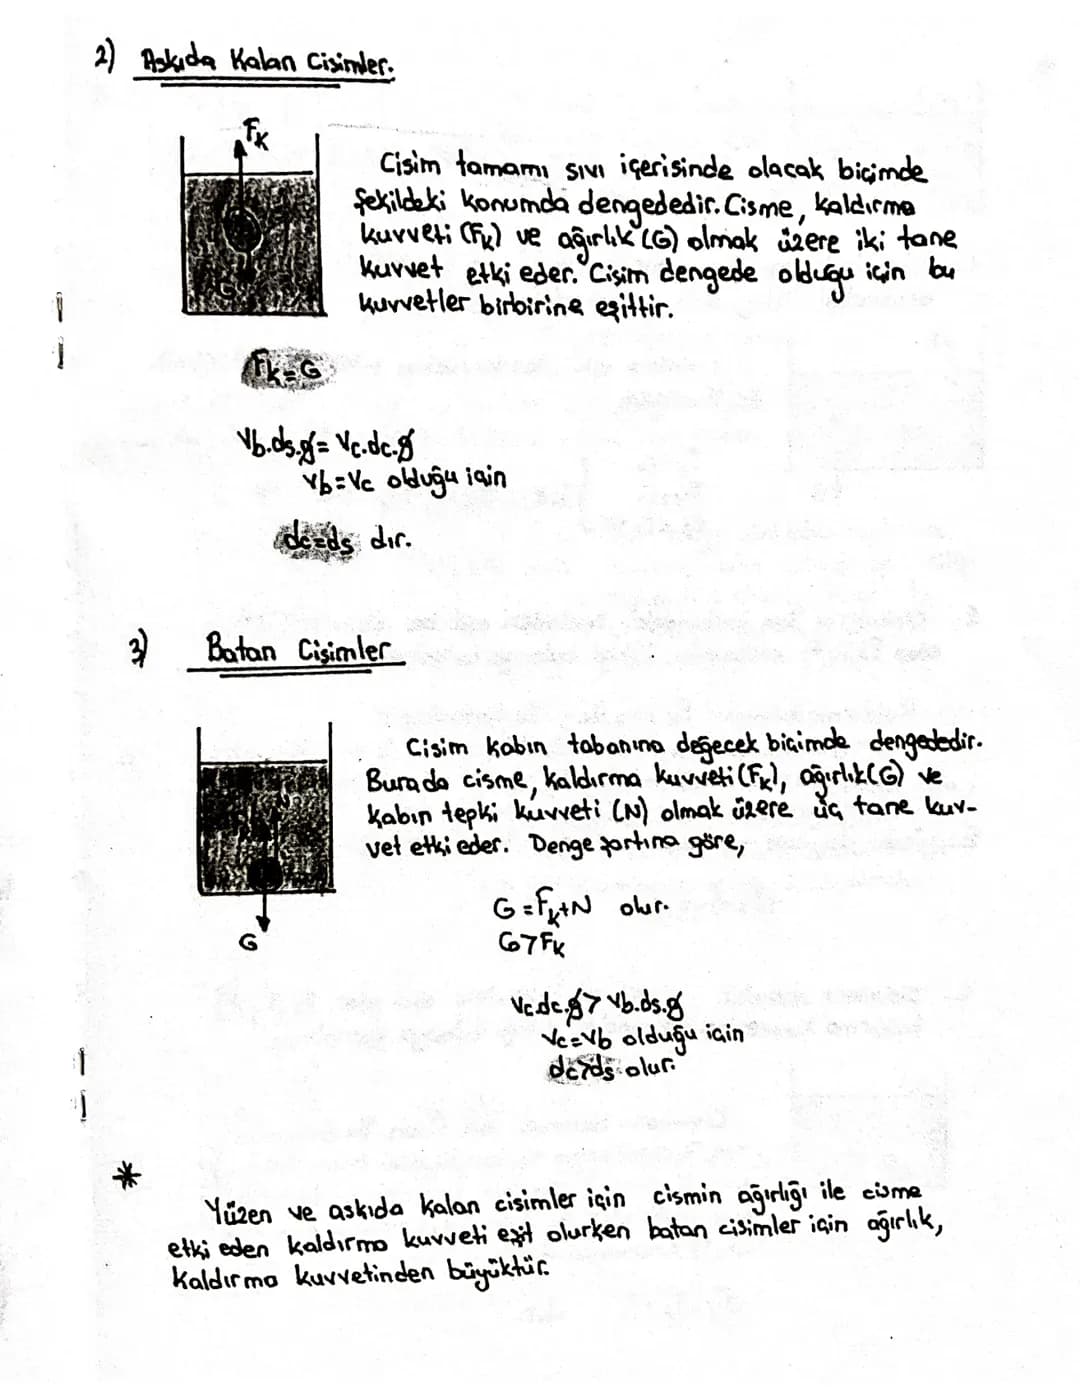 2) Askıda Kalan Cisimler.
Fk
Cisim tamamı sıvı içerisinde olacak biçimde
şekildeki konumda dengededir. Cisme, kaldırma
kuvveti (Fk) ve ağırlık (G) olmak üzere iki tane
kuvvet etki eder. Cisim dengede olduğu için bu
kuvvetler birbirine eşittir.
G
Fk=G
Vb.ds.g = Vc.dc.g
Vb=Vc olduğu için
dc=ds dır.
3) Batan Cisimler
Cisim kabın tabanına değecek biçimde dengededir.
Burada cisme, kaldırma kuvveti (Fk), ağırlık (G) ve
kabın tepki kuvveti (N) olmak üzere üç tane kuv-
vet etki eder. Denge şartına göre,
G
G=Fk+N olur.
G>Fk
Vc.dc.g > Vb.ds.g
Vc=Vb olduğu için
dc>ds olur.
*
Yüzen ve askıda kalan cisimler için cismin ağırlığı ile cisme
etki eden kaldırma kuvveti eşit olurken batan cisimler için ağırlık,
kaldırma kuvvetinden büyüktür.